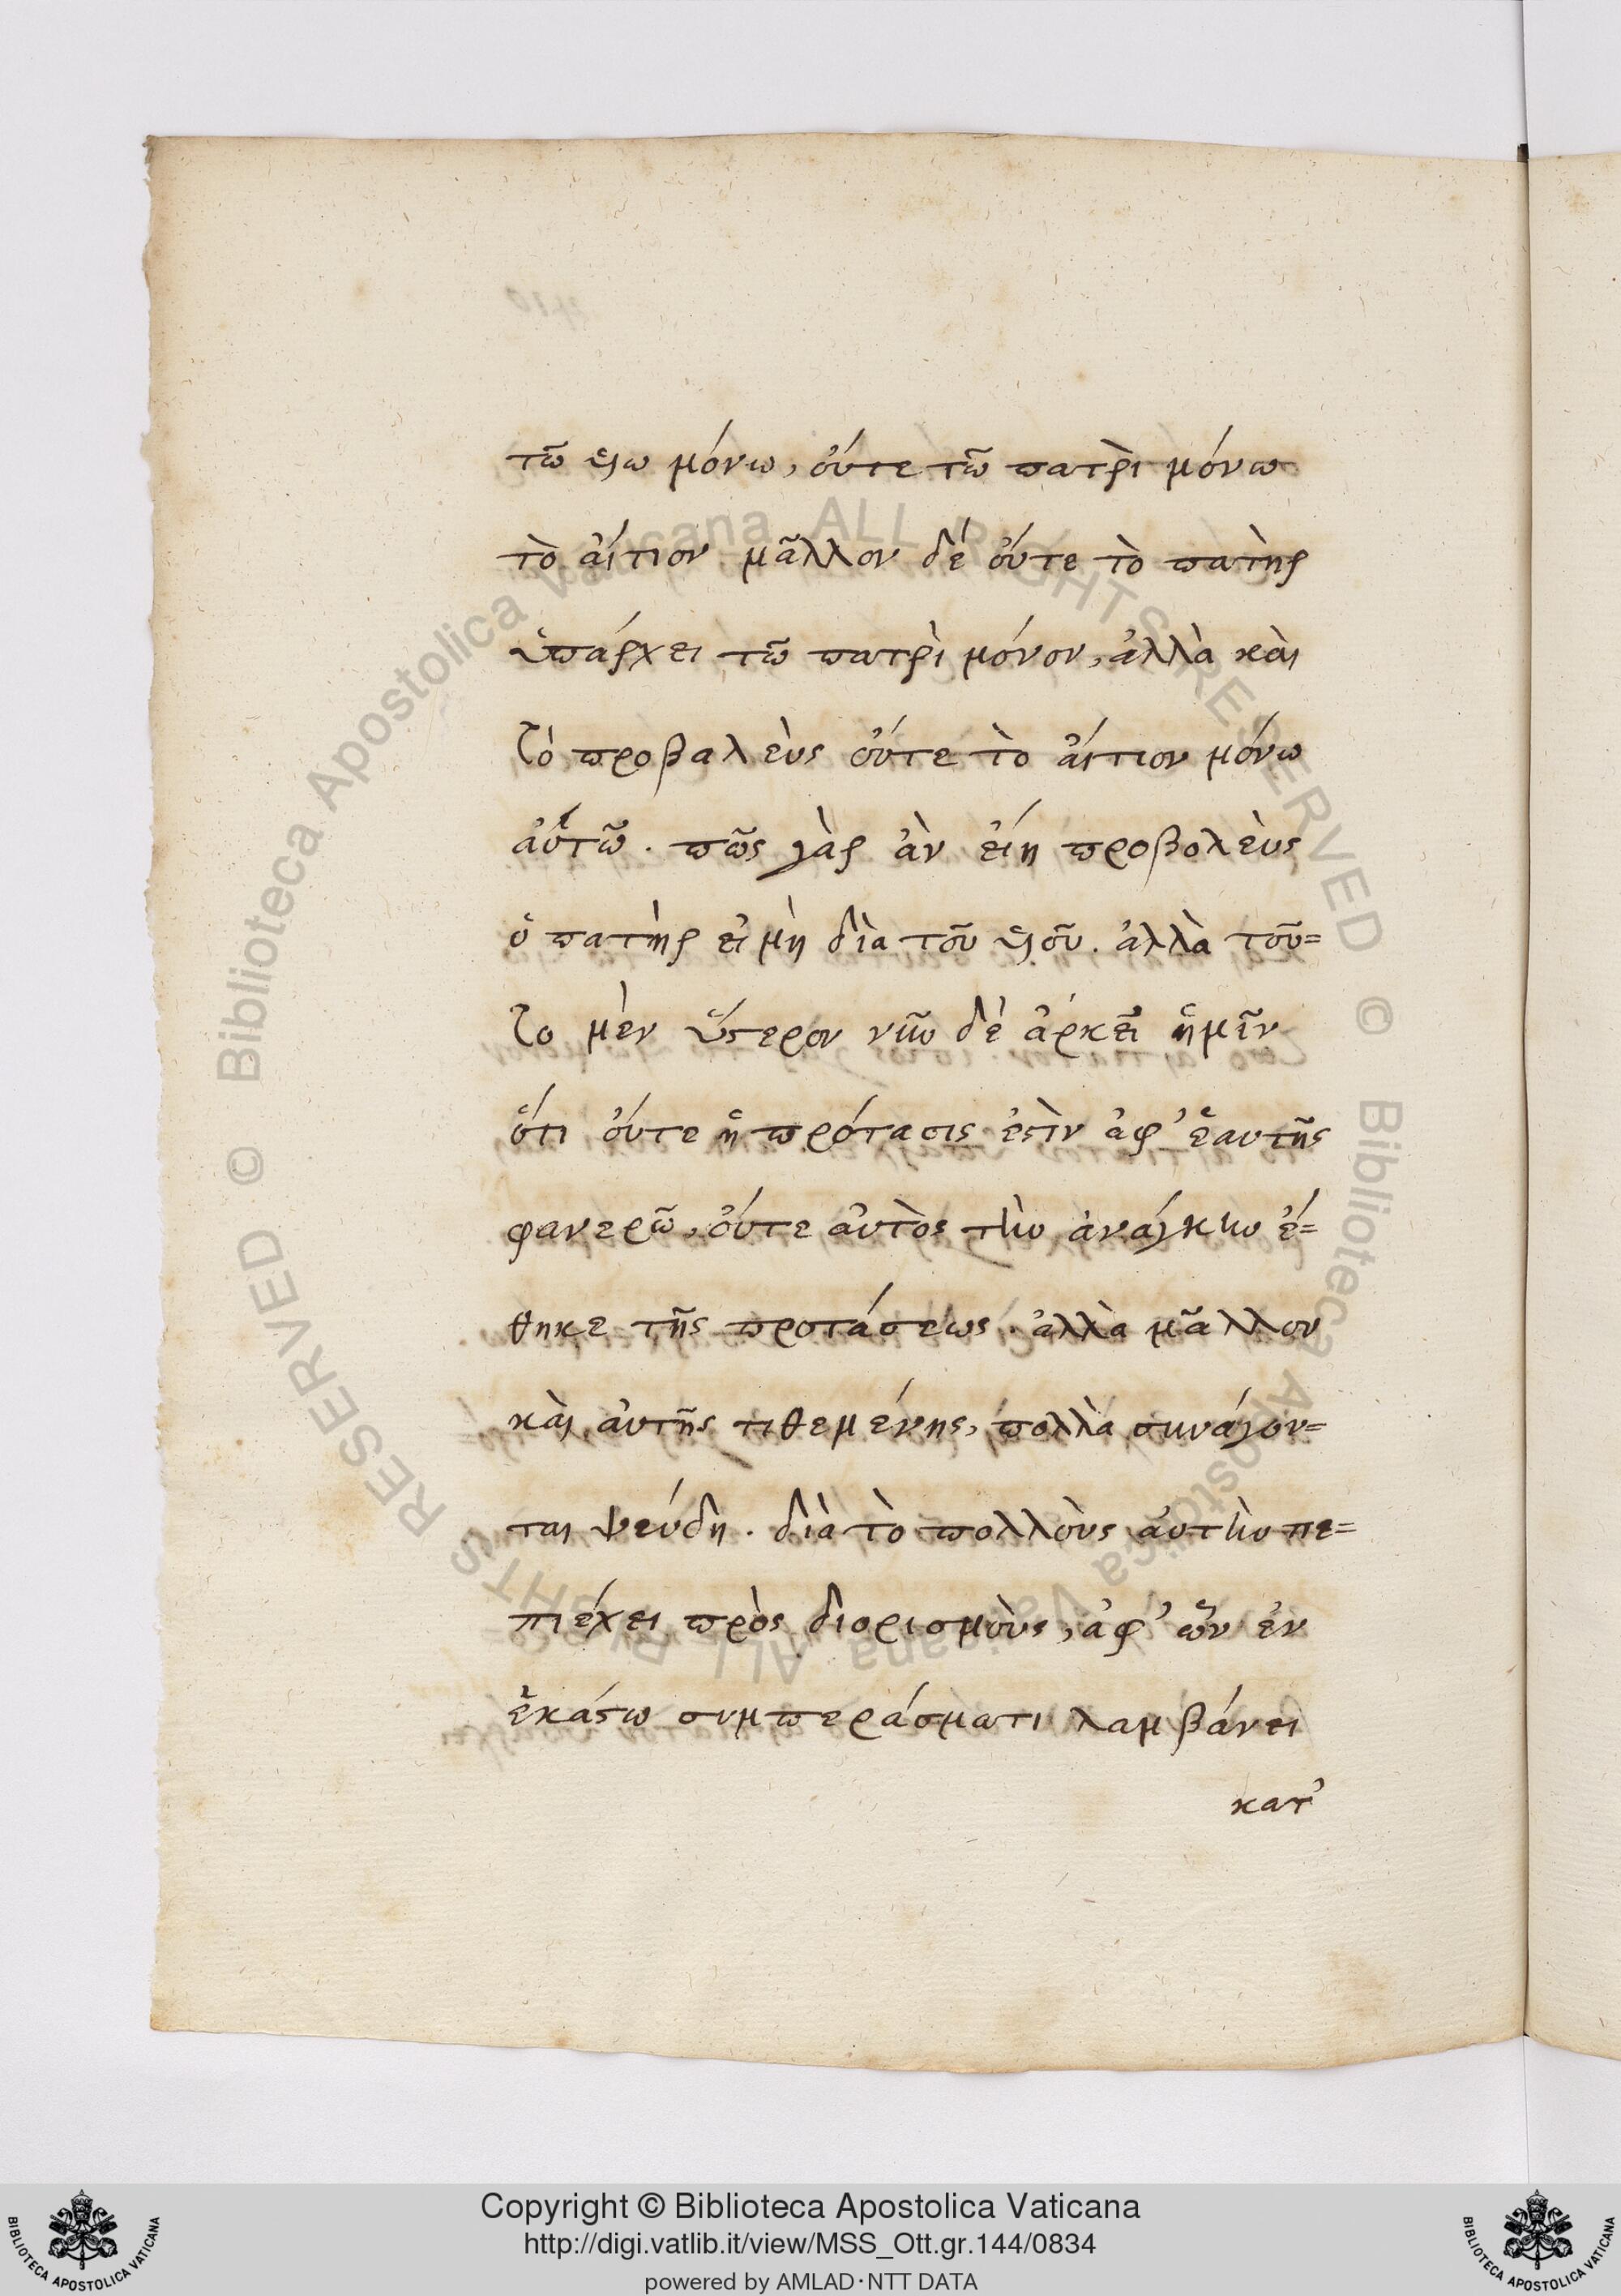 τῶ υἱω μόνω, οὔτε τῶ πατρὶ μόνω
τὸ αἴτιον μᾶλλον δέ οὔτε τὸ πατὴρ
ὑπάρχει τῶ πατρὶ μόνον, ἀλλὰ καὶ
τὸ προβαλεὺς οὔτε τὸ αἴτιον μόνω
αὐτῶ. πῶς γὰρ ἀν εἴη προβολεὺς
ὁ πατὴρ εἰ μὴ διὰ τοῦ υἱοῦ. ἀλλὰ τοῦ=
το μὲν ὕστερον νῦν δὲ ἀρκεῖ ἡμῖν
ὅτι οὔτε ἡ πρότασις ἐστὶν ἀφ' ἑαυτῆς
φανερῶ, οὔτε αὐτὸς τὴν ἀνάγκην ἔ=
θηκε τῆς προτάσεως. ἀλλὰ μᾶλλον
καὶ αὐτῆς τιθεμένης, πολλὰ συνάγον=
ται ψεύδη. διὰ τὸ πολλοὺς αὐτὴν πε=
πιέχει πρὸς διορισμοὺς, ἀφ' ὧν ἐν
ἑκάστω συμπεράσματι λαμβάνει
κατ'
Biblioteca Apostolica Vaticana ALL RIGHTS RESERVED ©
Biblioteca Apostolica Vaticana ALL RIGHTS RESERVED ©
Copyright © Biblioteca Apostolica Vaticana
http://digi.vatlib.it/view/MSS_Ott.gr.144/0834
powered by AMLAD·NTT DATA
BIBLIOTECA APOSTOLICA VATICANA
BIBLIOTECA APOSTOLICA VATICANA